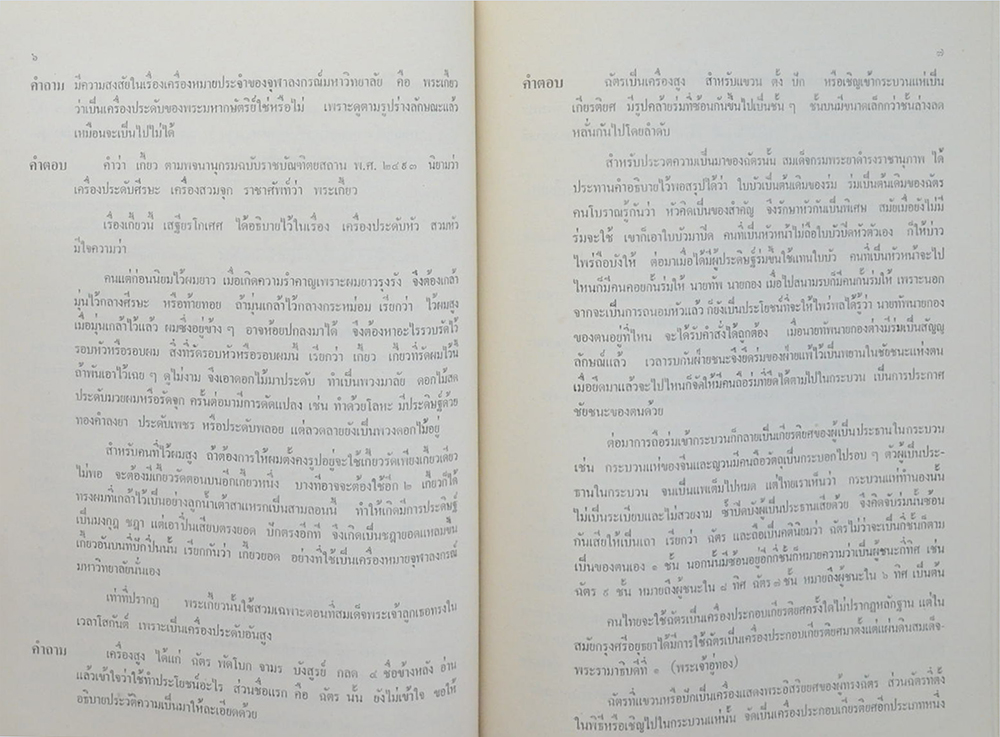 ๖
คำถาม มีความสงสัยในเรื่องเครื่องหมายประจำของจุฬาลงกรณ์มหาวิทยาลัย คือ พระเกี้ยว
ว่าเป็นเครื่องประดับของพระมหากษัตริย์ใช่หรือไม่ เพราะดูตามรูปร่างลักษณะแล้ว
เหมือนจะเป็นไปไม่ได้
คำตอบ คำว่า เกี้ยว ตามพจนานุกรมฉบับราชบัณฑิตยสถาน พ.ศ. ๒๔๙๓ นิยามว่า
เครื่องประดับศีรษะ เครื่องสวมจุก ราชาศัพท์ว่า พระเกี้ยว
เรื่องเกี้ยวนี้ เสฐียรโกเศศ ได้อธิบายไว้ในเรื่อง เครื่องประดับหัว สวมหัว
มีใจความว่า
คนแต่ก่อนนิยมไว้ผมยาว เมื่อเกิดความรำคาญเพราะผมยาวรุงรัง จึงต้องเกล้า
มุ่นไว้กลางศีรษะ หรือท้ายทอย ถ้ามุ่นเกล้าไว้กลางกระหม่อม เรียกว่า ไว้ผมสูง
เมื่อมุ่นเกล้าไว้แล้ว ผมซึ่งอยู่ข้าง ๆ อาจห้อยปกลงมาได้ จึงต้องหาอะไรรวบรัดไว้
รอบหัวหรือรอบผม สิ่งที่รัดรอบหัวหรือรอบผมนี้ เรียกว่า เกี้ยว เกี้ยวที่รัดผมไว้นี้
ถ้าพันเอาไว้เฉย ๆ ดูไม่งาม จึงเอาดอกไม้มาประดับ ทำเป็นพวงมาลัย ดอกไม้สด
ประดับมวยผมหรือรัดจุก ครั้นต่อมามีการดัดแปลง เช่น ทำด้วยโลหะ มีประดิษฐ์ด้วย
ทองคำลงยา ประดับเพชร หรือประดับพลอย แต่ลวดลายยังเป็นพวงดอกไม้อยู่
สำหรับคนที่ไว้ผมสูง ถ้าต้องการให้ผมตั้งคงรูปอยู่จะใช้เกี้ยวรัดเพียงเกี้ยวเดียว
ไม่พอ จะต้องมีเกี้ยวรัดตอนบนอีกเกี้ยวหนึ่ง บางทีอาจจะต้องใช้อีก ๒ เกี้ยวก็ได้
ทรงผมที่เกล้าไว้เป็นอย่างลูกน้ำเต้าสาแหรกเป็นสามลอนนี้ ทำให้เกิดมีการประดิษฐ์
เป็นมงกุฎ ชฎา แต่เอาปิ่นเสียบตรงยอด ปักตรงอีกที จึงเกิดเป็นชฎายอดแหลมขึ้น
เกี้ยวอันบนที่ปักปิ่นนั้น เรียกกันว่า เกี้ยวยอด อย่างที่ใช้เป็นเครื่องหมายจุฬาลงกรณ์
มหาวิทยาลัยนั่นเอง
เท่าที่ปรากฏ พระเกี้ยวนั้นใช้สวมเฉพาะตอนที่สมเด็จพระเจ้าลูกเธอทรงใน
เวลาโสกันต์ เพราะเป็นเครื่องประดับอันสูง
คำถาม เครื่องสูง ได้แก่ ฉัตร พัดโบก จามร บังสูรย์ กลด ๔ ชื่อข้างหลัง อ่าน
แล้วเข้าใจว่าใช้ทำประโยชน์อะไร ส่วนชื่อแรก คือ ฉัตร นั้น ยังไม่เข้าใจ ขอให้
อธิบายประวัติความเป็นมาให้ละเอียดด้วย
๗
คำตอบ ฉัตรเป็นเครื่องสูง สำหรับแขวน ตั้ง ปัก หรือเชิญเข้ากระบวนแห่เป็น
เกียรติยศ มีรูปคล้ายร่มที่ซ้อนกันขึ้นไปเป็นชั้น ๆ ชั้นบนมีขนาดเล็กกว่าชั้นล่างลด
หลั่นกันไปโดยลำดับ
สำหรับประวัติความเป็นมาของฉัตรนั้น สมเด็จกรมพระยาดำรงราชานุภาพ ได้
ประทานคำอธิบายไว้พอสรุปได้ว่า ใบบัวเป็นต้นเดิมของร่ม ร่มเป็นต้นเดิมของฉัตร
คนโบราณรู้กันว่า หัวคิดเป็นของสำคัญ จึงรักษาหัวกันเป็นพิเศษ สมัยเมื่อยังไม่มี
ร่มจะใช้ เขาก็เอาใบบัวมาปิด คนที่เป็นหัวหน้าไม่ถือใบบัวปิดหัวตัวเอง ก็ให้บ่าว
ไพร่ถือบังให้ ต่อมาเมื่อได้มีผู้ประดิษฐ์ร่มขึ้นใช้แทนใบบัว คนที่เป็นหัวหน้าจะไป
ไหนก็มีคนคอยกั้นร่มให้ นายทัพ นายกอง เมื่อไปสนามรบก็มีคนกั้นร่มให้ เพราะนอก
จากจะเป็นการถนอมหัวแล้ว ก็ยังเป็นประโยชน์ที่จะให้ไพร่พลได้รู้ว่า นายทัพนายกอง
ของตนอยู่ที่ไหน จะได้รับคำสั่งได้ถูกต้อง เมื่อนายทัพนายกองต่างมีร่มเป็นสัญญ
ลักษณ์แล้ว เวลารบกันฝ่ายชนะจึงยึดร่มของฝ่ายแพ้ไว้เป็นพยานในชัยชนะแห่งตน
เมื่อยึดมาแล้วจะไปไหนก็จัดให้มีคนถือร่มที่ยึดได้ตามไปในกระบวน เป็นการประกาศ
ชัยชนะของตนด้วย
ต่อมาการถือร่มเข้ากระบวนก็กลายเป็นเกียรติยศของผู้เป็นประธานในกระบวน
เช่น กระบวนแห่ของจีนและญวนมีคนถือวัตถุเป็นกระบอกไปรอบ ๆ ตัวผู้เป็นประ-
ธานในกระบวน จนเป็นแพเต็มไปหมด แต่ไทยเราเห็นว่า กระบวนแห่ทำนองนั้น
ไม่เป็นระเบียบและไม่สวยงาม ซ้ำปิดบังผู้เป็นประธานเสียด้วย จึงคิดจับร่มนั้นซ้อน
กันเสียให้เป็นเถา เรียกว่า ฉัตร และถือเป็นคตินิยมว่า ฉัตรไม่ว่าจะเป็นกี่ชั้นก็ตาม
เป็นของตนเอง ๑ ชั้น นอกนั้นมีซ้อนอยู่อีกกี่ชั้นก็หมายความว่าเป็นผู้ชนะกี่ทิศ เช่น
ฉัตร ๙ ชั้น หมายถึงผู้ชนะใน ๘ ทิศ ฉัตร ๗ ชั้น หมายถึงผู้ชนะใน ๖ ทิศ เป็นต้น
คนไทยจะใช้ฉัตรเป็นเครื่องประกอบเกียรติยศครั้งใดไม่ปรากฏหลักฐาน แต่ใน
สมัยกรุงศรีอยุธยาได้มีการใช้ฉัตรเป็นเครื่องประกอบเกียรติยศมาตั้งแต่แผ่นดินสมเด็จ-
พระรามาธิบดีที่ ๑ (พระเจ้าอู่ทอง)
ฉัตรที่แขวนหรือปักเป็นเครื่องแสดงพระอิสริยยศของผู้ทรงฉัตร ส่วนฉัตรที่ตั้ง
ในพิธีหรือเชิญไปในกระบวนแห่นั้น จัดเป็นเครื่องประกอบเกียรติยศอีกประเภทหนึ่ง